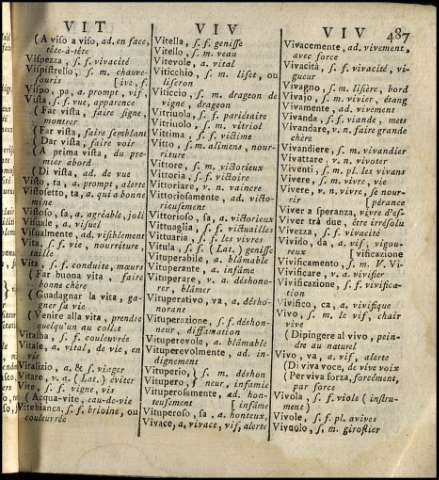 VIT
VIV
VIV 487
(A viso a viso, ad. en face,
tête-à-tête
Vispezza, s. f. vivacité
Vispistrello, s. m. chauve-
[ive, f.
Vispo, pa, a. prompt, vif,
Vista, s. f. vue, apparence
(Far vista, faire signe,
montrer
(Far vista, faire semblant
(Dar vista, faire voir
(A prima vista, du pre-
mier abord
(Di vista, ad. de vue
Visto, ta, a. prompt, alerte
Vistosetto, ta, a. qui a bonne
mine
Vistoso, sa, a. agréable, joli
Visuale, a. visuel
Visualmente, ad. visiblement
Vita, s. f. vie, nourriture,
taille
Vita, s. f. conduite, mœurs
(Far buona vita, faire
bonne chère
(Guadagnar la vita, ga-
gner sa vie
(Venire alla vita, prendre
quelqu'un au collet
Vitalba, s. f. couleuvrée
Vitale, a. vital, de vie, en
vie
Vitalizio, a. & s. viager
Vitare, v. a. (Lat.) éviter
Vite, s. f. vigne, vis
(Acqua-vite, eau-de-vie
Vitebianca, s. f. brioine, ou
couleuvrée
Vitella, s. f. genisse
Vitello, s. m. veau
Vitevole, a. vital
Viticchio, s. m. liset, ou
liseron
Viticcio, s. m. drageon de
vigne, drageon
Vitriuola, s. f. pariétaire
Vitriuolo, s. m. vitriol
Vittima, s. f. victime
Vitto, s. m. alimens, nour-
riture
Vittore, s. m. victorieux
Vittoria, s. f. victoire
Vittoriare, v. n. vaincre
Vittoriosamente, ad. victo-
rieusement
Vittorioso, sa, a. victorieux
Vittuaglia, s. f. victuailles
Vittuaria, s. f. les vivres
Vitula, s. f. (Lat.) genisse
Vituperabile, a. blâmable
Vituperante, a. infâme
Vituperare, v. a. déshono-
rer, blâmer
Vituperativo, va, a. désho-
norant
Vituperazione, s. f. déshon-
neur, diffamation
Vituperevole, a. blâmable
Vituperevolmente, ad. in-
dignement
Vituperio, } s. m. déshon
Vitupero, } neur, infamie
Vituperosamente, ad. hon-
teusement [infâme
Vituperoso, sa, a. honteux,
Vivace, a. vivace, vif, alerte
Vivacemente, ad. vivement,
avec force
Vivacità, s. f. vivacité, vi-
gueur
Vivagno, s. m. lisière, bord
Vivajo, s. m. vivier, étang
Vivamente, ad. vivement
Vivanda, s. f. viande, mets
Vivandare, v. n. faire grande
chère
Vivandiere, s. m. vivandier
Vivattare, v. n. vivoter
Viventi, s. m. pl. les vivans
Vivere, s. m. vivre, vie
Vivere, v. n. vivre, se nour-
rir [pérance
Viver a speranza, vivre d'es-
Viver tra due, être irrésolu
Vivezza, s. f. vivacité
Vivido, da, a. vif, vigou-
reux [vification
Vivificamento, s. m. V. Vi-
Vivificare, v. a. vivifier
Vivificazione, s. f. vivifica-
tion
Vivifico, ca, a. vivifique
Vivo, s. m. le vif, chair
vive
(Dipingere al vivo, pein-
dre au naturel
Vivo, va, a. vif, alerte
(Di viva voce, de vive voix
(Per viva forza, forcément,
par force
Vivola, s. f. viole (instru-
ment)
Vivole, s. f. pl. avives
Vivuolo, s. m. giroflier